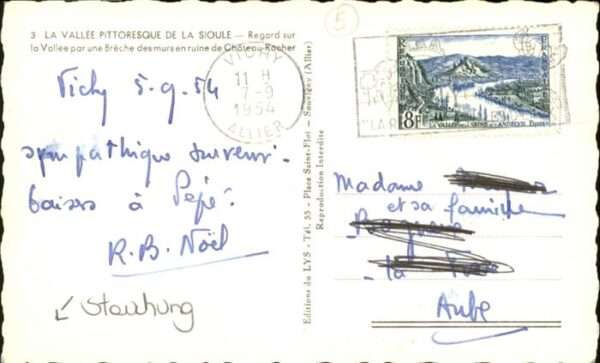 3 LA VALLÉE PITTORESQUE DE LA SIOULE — Regard sur
la Vallée par une Brèche des murs en ruine de Château-Rocher
Vichy 5.9.54
VICHY
11 H
7-9
1954
ALLIER
sympathique souvenir.
baisers à Pépé.
R.B. Noël
Stauchung
Editions du LYS - Tél. 55 - Place Saint-Flot - Souvigny (Allier)
Reproduction Interdite
5
8F
LA VALLÉE DE LA SEINE AUX ANDELYS
Madame
et sa famille
la
Aube